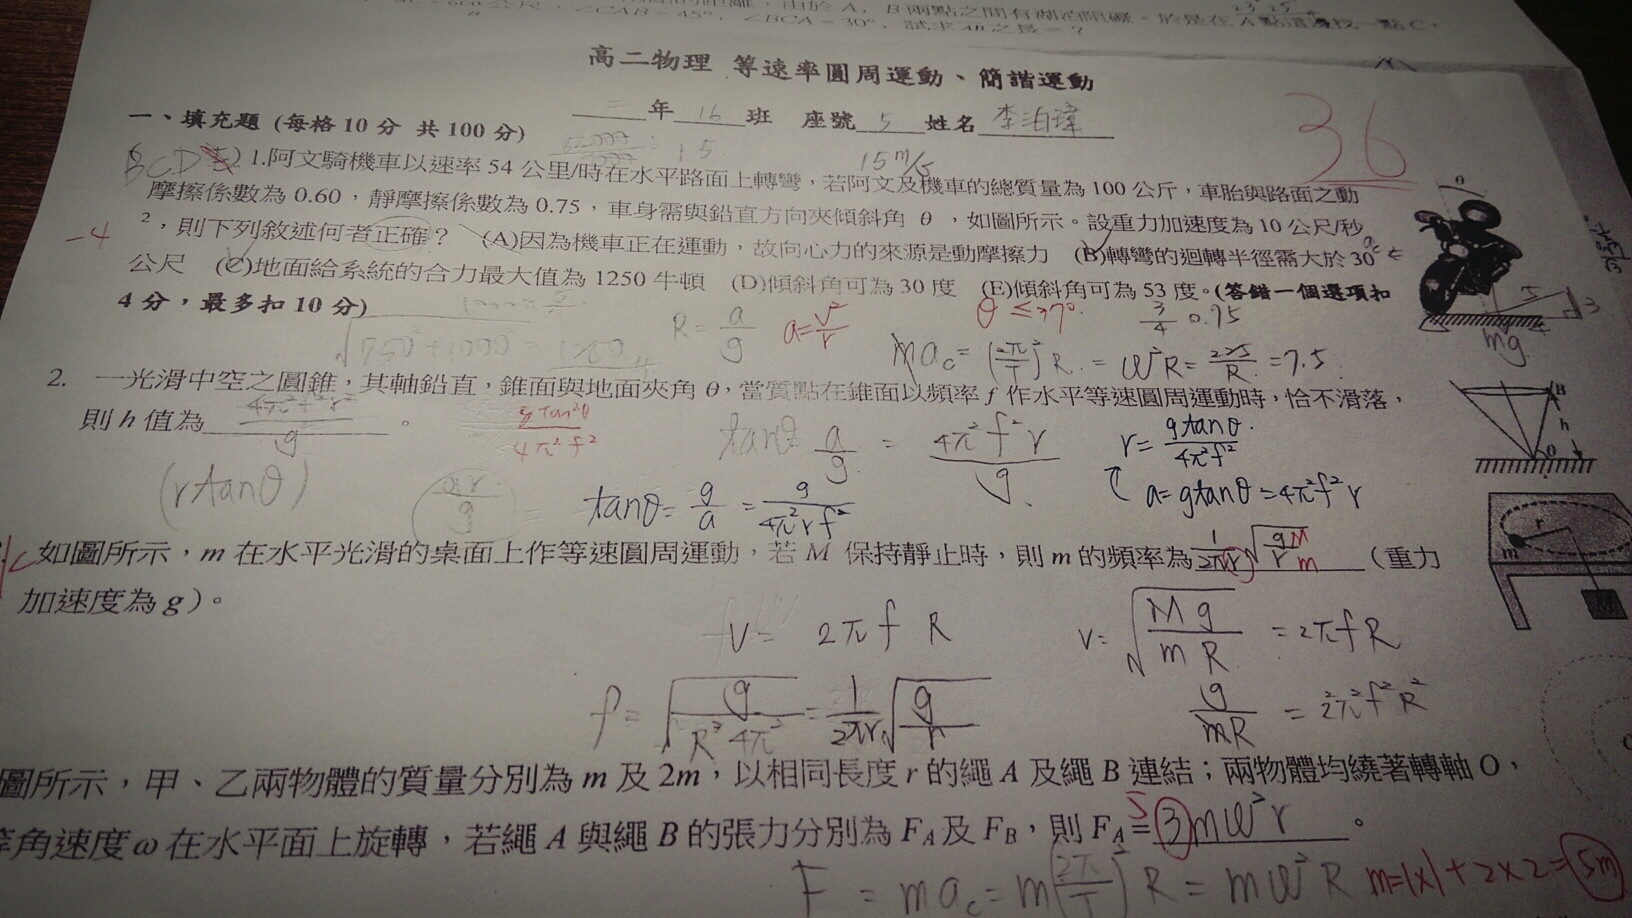 公尺，∠CAB = 45°，∠BCA = 30°，試求 AB 之長 = ?
高二物理 等速率圓周運動、簡諧運動
36
一、填充題 (每格 10 分 共 100 分)
二年 16 班 座號 5 姓名 李泊瑋
= 15
15 m/s
BCD 1.阿文騎機車以速率 54 公里/時在水平路面上轉彎，若阿文及機車的總質量為 100 公斤，車胎與路面之動
摩擦係數為 0.60，靜摩擦係數為 0.75，車身需與鉛直方向夾傾斜角 θ ，如圖所示。設重力加速度為 10 公尺/秒
-4
²，則下列敘述何者正確？ (A)因為機車正在運動，故向心力的來源是動摩擦力 (B)轉彎的迴轉半徑需大於 30
公尺 (C)地面給系統的合力最大值為 1250 牛頓 (D)傾斜角可為 30 度 (E)傾斜角可為 53 度。(答錯一個選項扣
4 分，最多扣 10 分)
R = a/g a = v²/r θ ≤ 37° 3/4 0.75
mac = (2π/T)² R = ω²R = 225/R = 7.5
θ
5 3 4
mg
2. 一光滑中空之圓錐，其軸鉛直，錐面與地面夾角 θ，當質點在錐面以頻率 f 作水平等速圓周運動時，恰不滑落，
則 h 值為 4π²f²r²/g 。
g tan²θ/4π²f²
tanθ a/g = 4π²f²r/g
r = gtanθ/4π²f²
(rtanθ)
tanθ = g/a = g/4π²rf²
a = gtanθ = 4π²f²r
B
h
θ
如圖所示，m 在水平光滑的桌面上作等速圓周運動，若 M 保持靜止時，則 m 的頻率為 1/2πr √gM/rm （重力
加速度為 g）。
r
m
M
V = 2πf R
V = √Mg/mR = 2πfR
f = √g/R³4π² = 1/2πr √g/r
g/mR = 2²π²f²R²
圖所示，甲、乙兩物體的質量分別為 m 及 2m，以相同長度 r 的繩 A 及繩 B 連結；兩物體均繞著轉軸 O，
等角速度 ω 在水平面上旋轉，若繩 A 與繩 B 的張力分別為 FA 及 FB，則 FA = 3mω²r 。
5
F = mac = m(2π/T)² R = mω²R m=1×1+2×2=5m